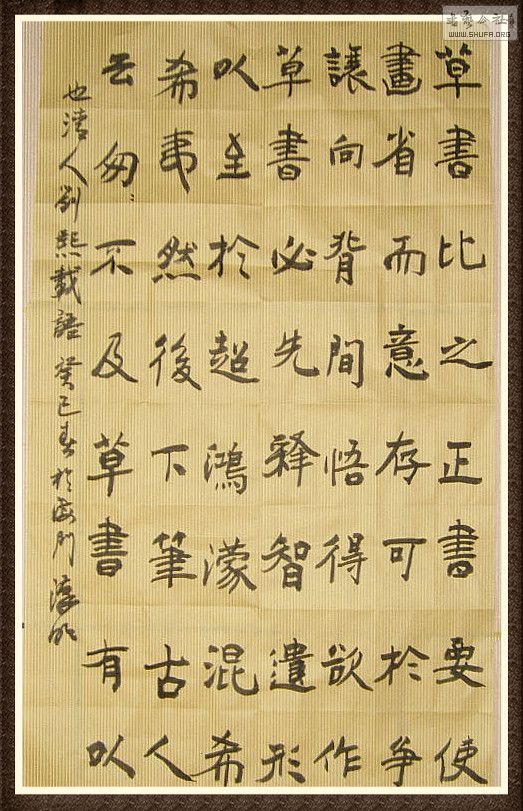 草書比之正書要使
畫省而意存可於争
讓向背間悟得欲作
草書必先釋智遺形
以至於超鴻濛混希
希夷然後下筆古人
云匆不及草書有以
也清人劉熙載語癸巳春於海門
書藝公社
WWW.SHUFA.ORG